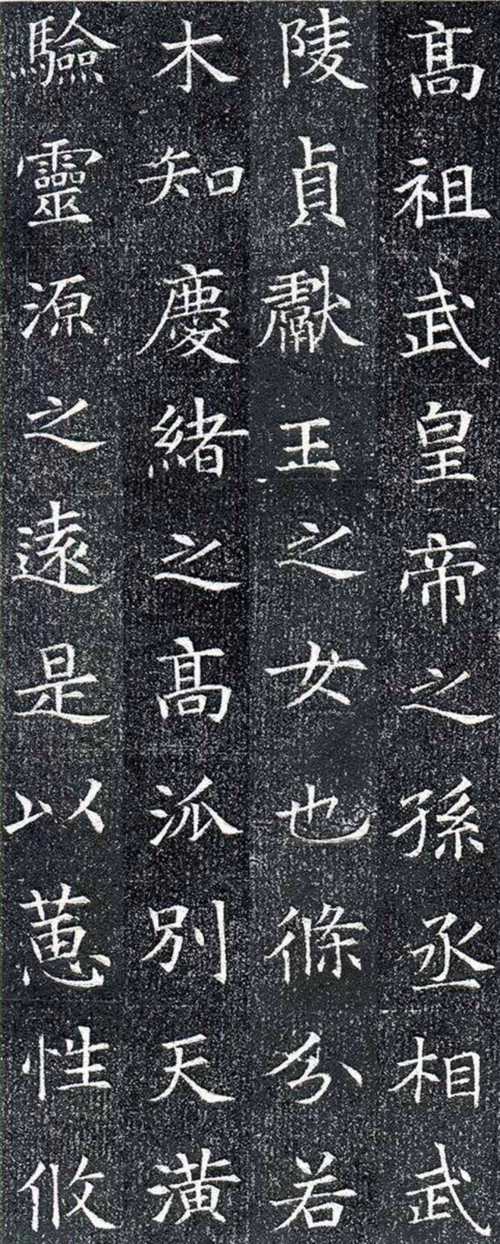 髙祖武皇帝之孫丞相武
陵貞獻王之女也條分若
木知慶緒之髙派別天潢
驗靈源之遠是以蕙性攸